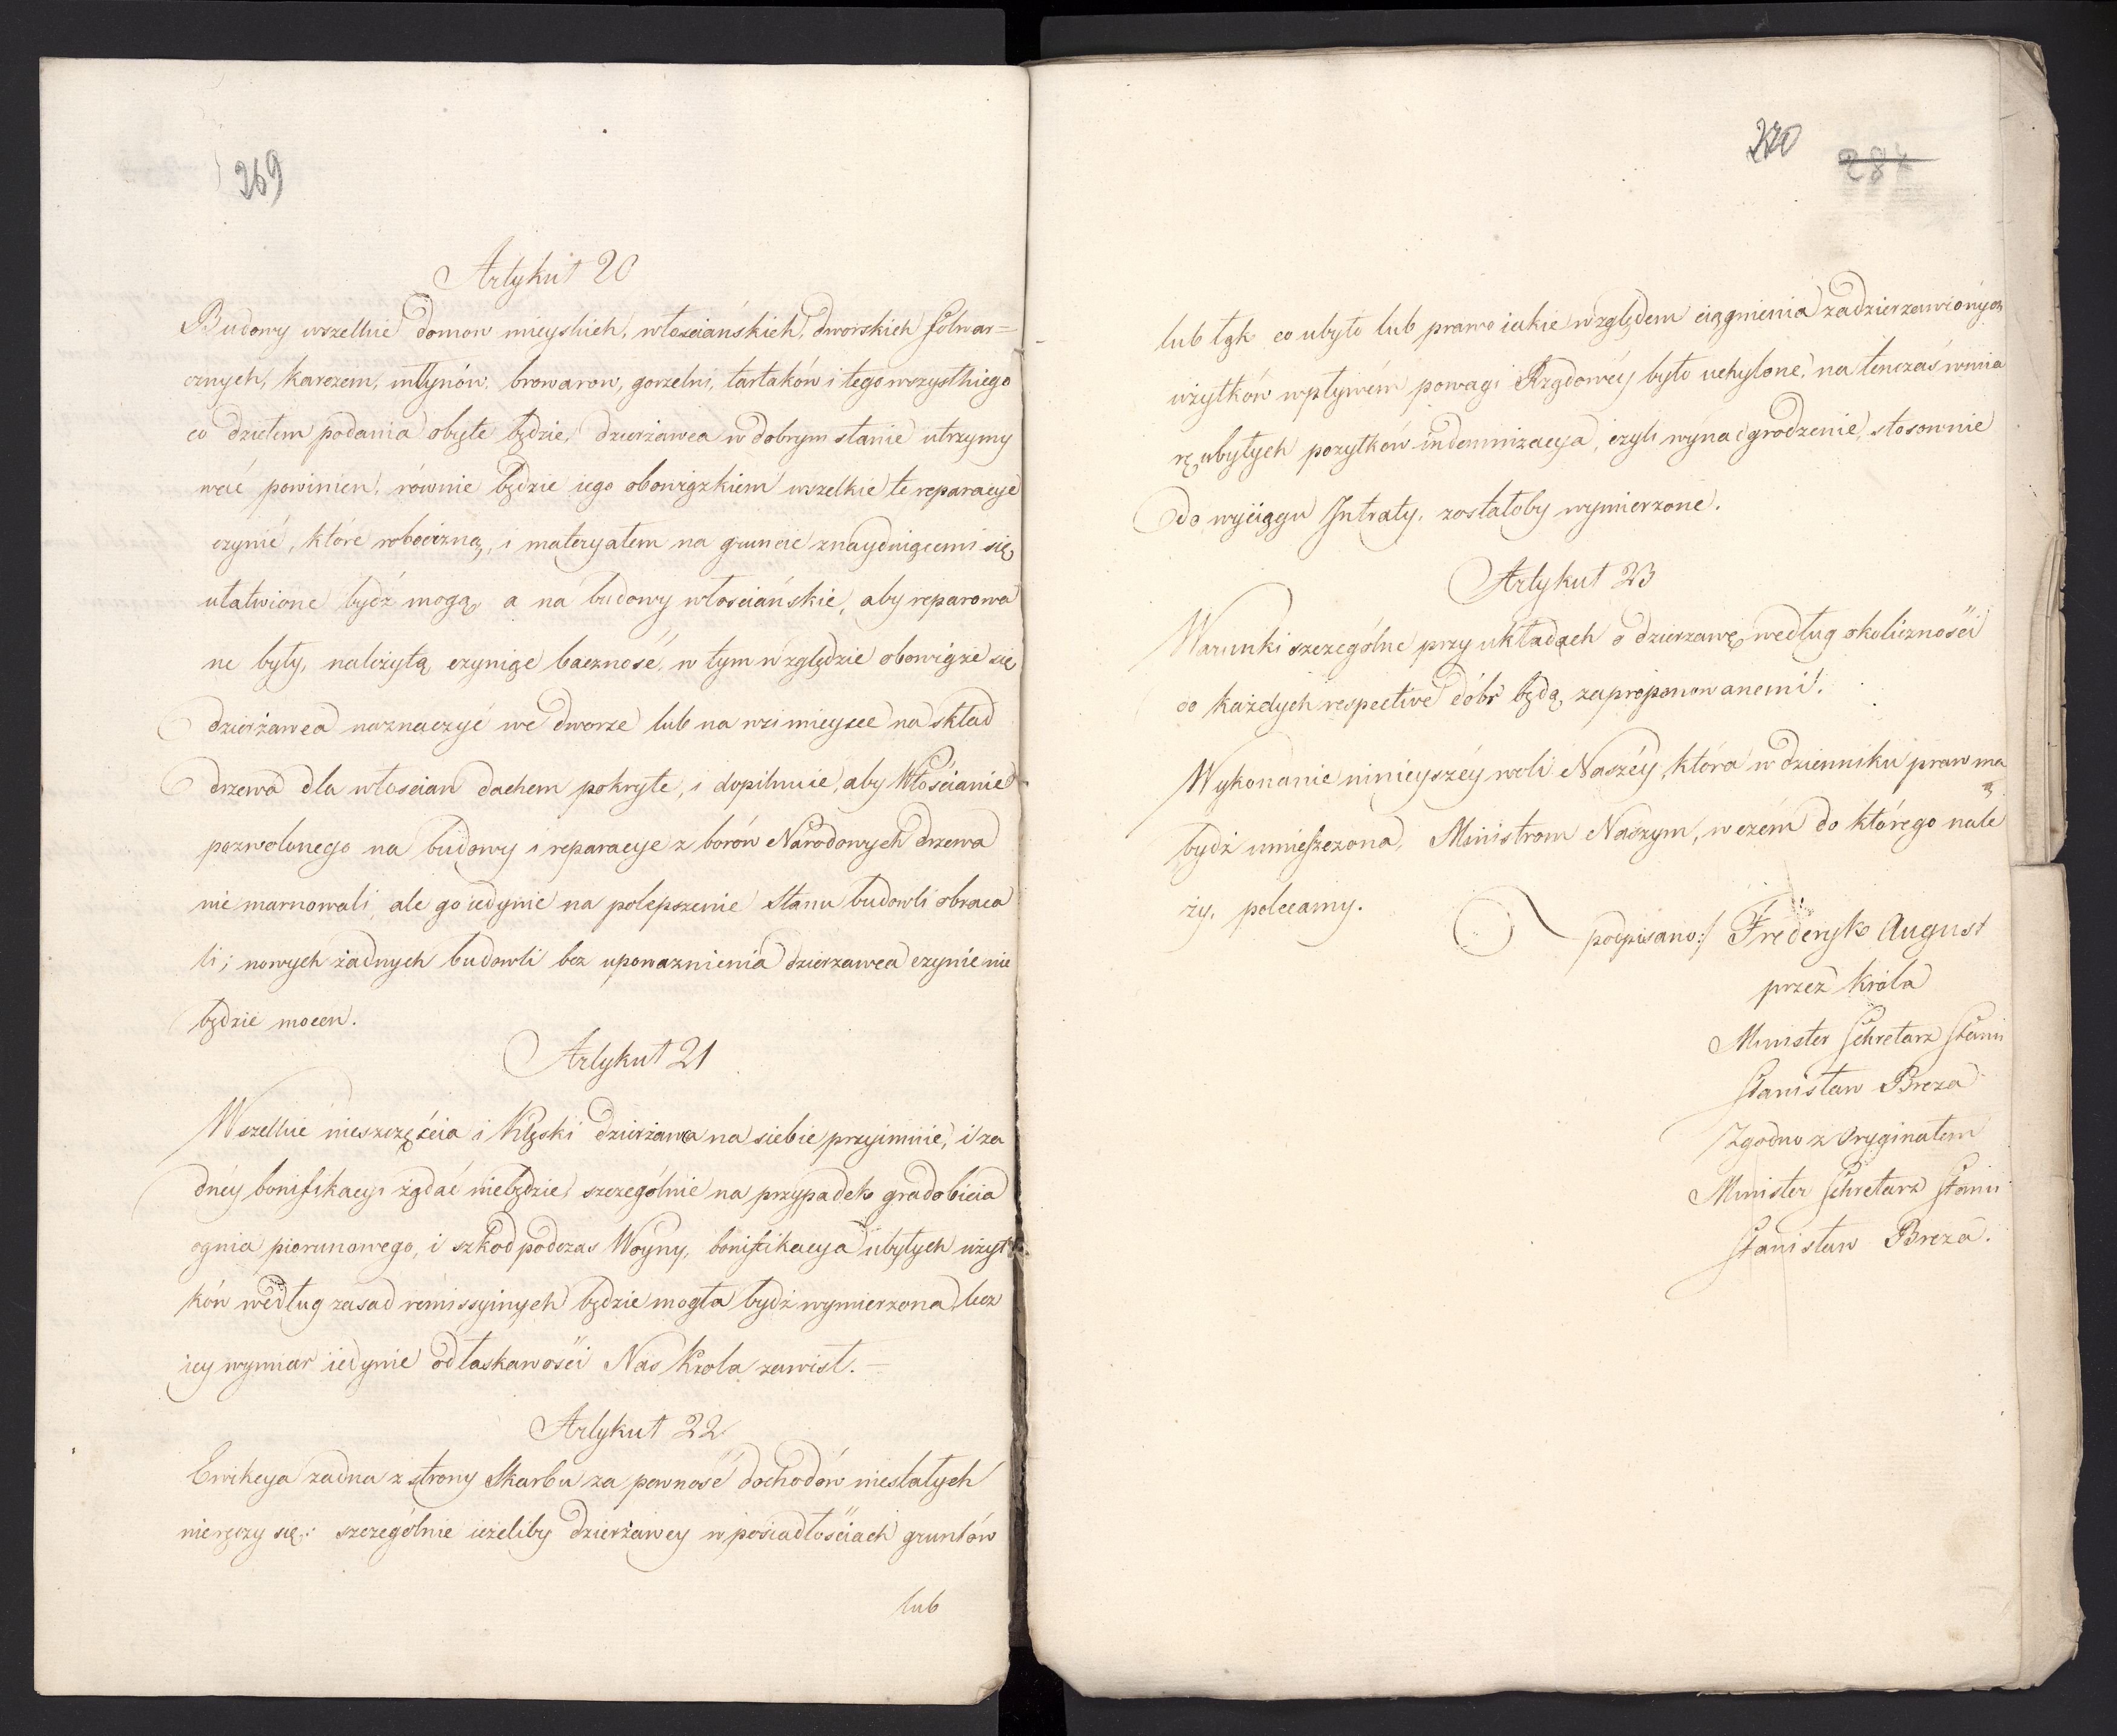 269
Artykuł 20
Budowy wszelkie domow mieyskich, włosciańskich, dworskich folwar=
cznych, karczem, młynów, browarow, gorzelni, tartaków i tego wszystkiego
co dziełem podania objęte będzie, dzierżawca w dobrym stanie utrzymy
wać powinien, równie będzie iego obowiązkiem wszelkie te reparacye
czynić, które robocizną, i materyałem na gruncie znayduiącemi się
ułatwione bydź mogą, a na budowy włosciańskie, aby reparowa
ne były, należytą czyniąc baczność, w tym względzie obowiąże się
dzierżawca naznaczyć we dworze lub na wsi mieysce na skład
drzewa dla włoscian dachem pokryte, i dopilnuie, aby Włościanie
pozwolonego na budowy i reparacye z borów Narodowych drzewa
nie marnowali, ale go iedynie na polepszenie stanu budowli obraca
li; nowych żadnych budowli bez upoważnienia dzierzawca czynić nie
będzie mocen.
Artykuł 21
Wszelkie nieszczęścia i Klęski dzierżawca na siebie przyimuie, i ża
dnéy bonifikacyi żądać niebędzie, szczególnie na przypadek gradobicia
ognia piorunowego, i szkod podczas Woyny, bonifikacya ubytych użyt
ków według zasad rémissyinych będzie mogła bydź wymierzona, lecz
iey wymiar iedynie od łaskawości Nas Krola zawisł. —
Artykuł 22
Ewikcya żadna z strony Skarbu za pewność dochodów niestałych
nieręczy się: szczególnie ieżeliby dzierżawcy w posiadłościach gruntów
lub
270 287
lub łąk co ubyło lub prawo iakie względem ciągnienia zadzierzawionych
użytków wpływém powagi Rządowéy było uchylone, na tenczas w mia
rę ubytych pożytków indemnizacya, czyli wynadgrodzenie, stosownie
do wyciągu Intraty, zostałoby wymierzone.
Artykuł 23
Warunki szczególne przy układach o dzierzawę według okoliczności
co każdych respective dóbr będą zaproponowanemi.
Wykonanie ninieyszéy woli Naszéy, która w dzienniku praw ma
bydź umieszczona, Ministrom Naszym, w czém do którego nale
ży, polecamy.
podpisano:/ Frederyk August
przez króla
Minister Sekretarz Stanu
Stanisław Breza
Zgodno z Oryginałem
Minister Sekretarz Stanu
Stanisław Breza.